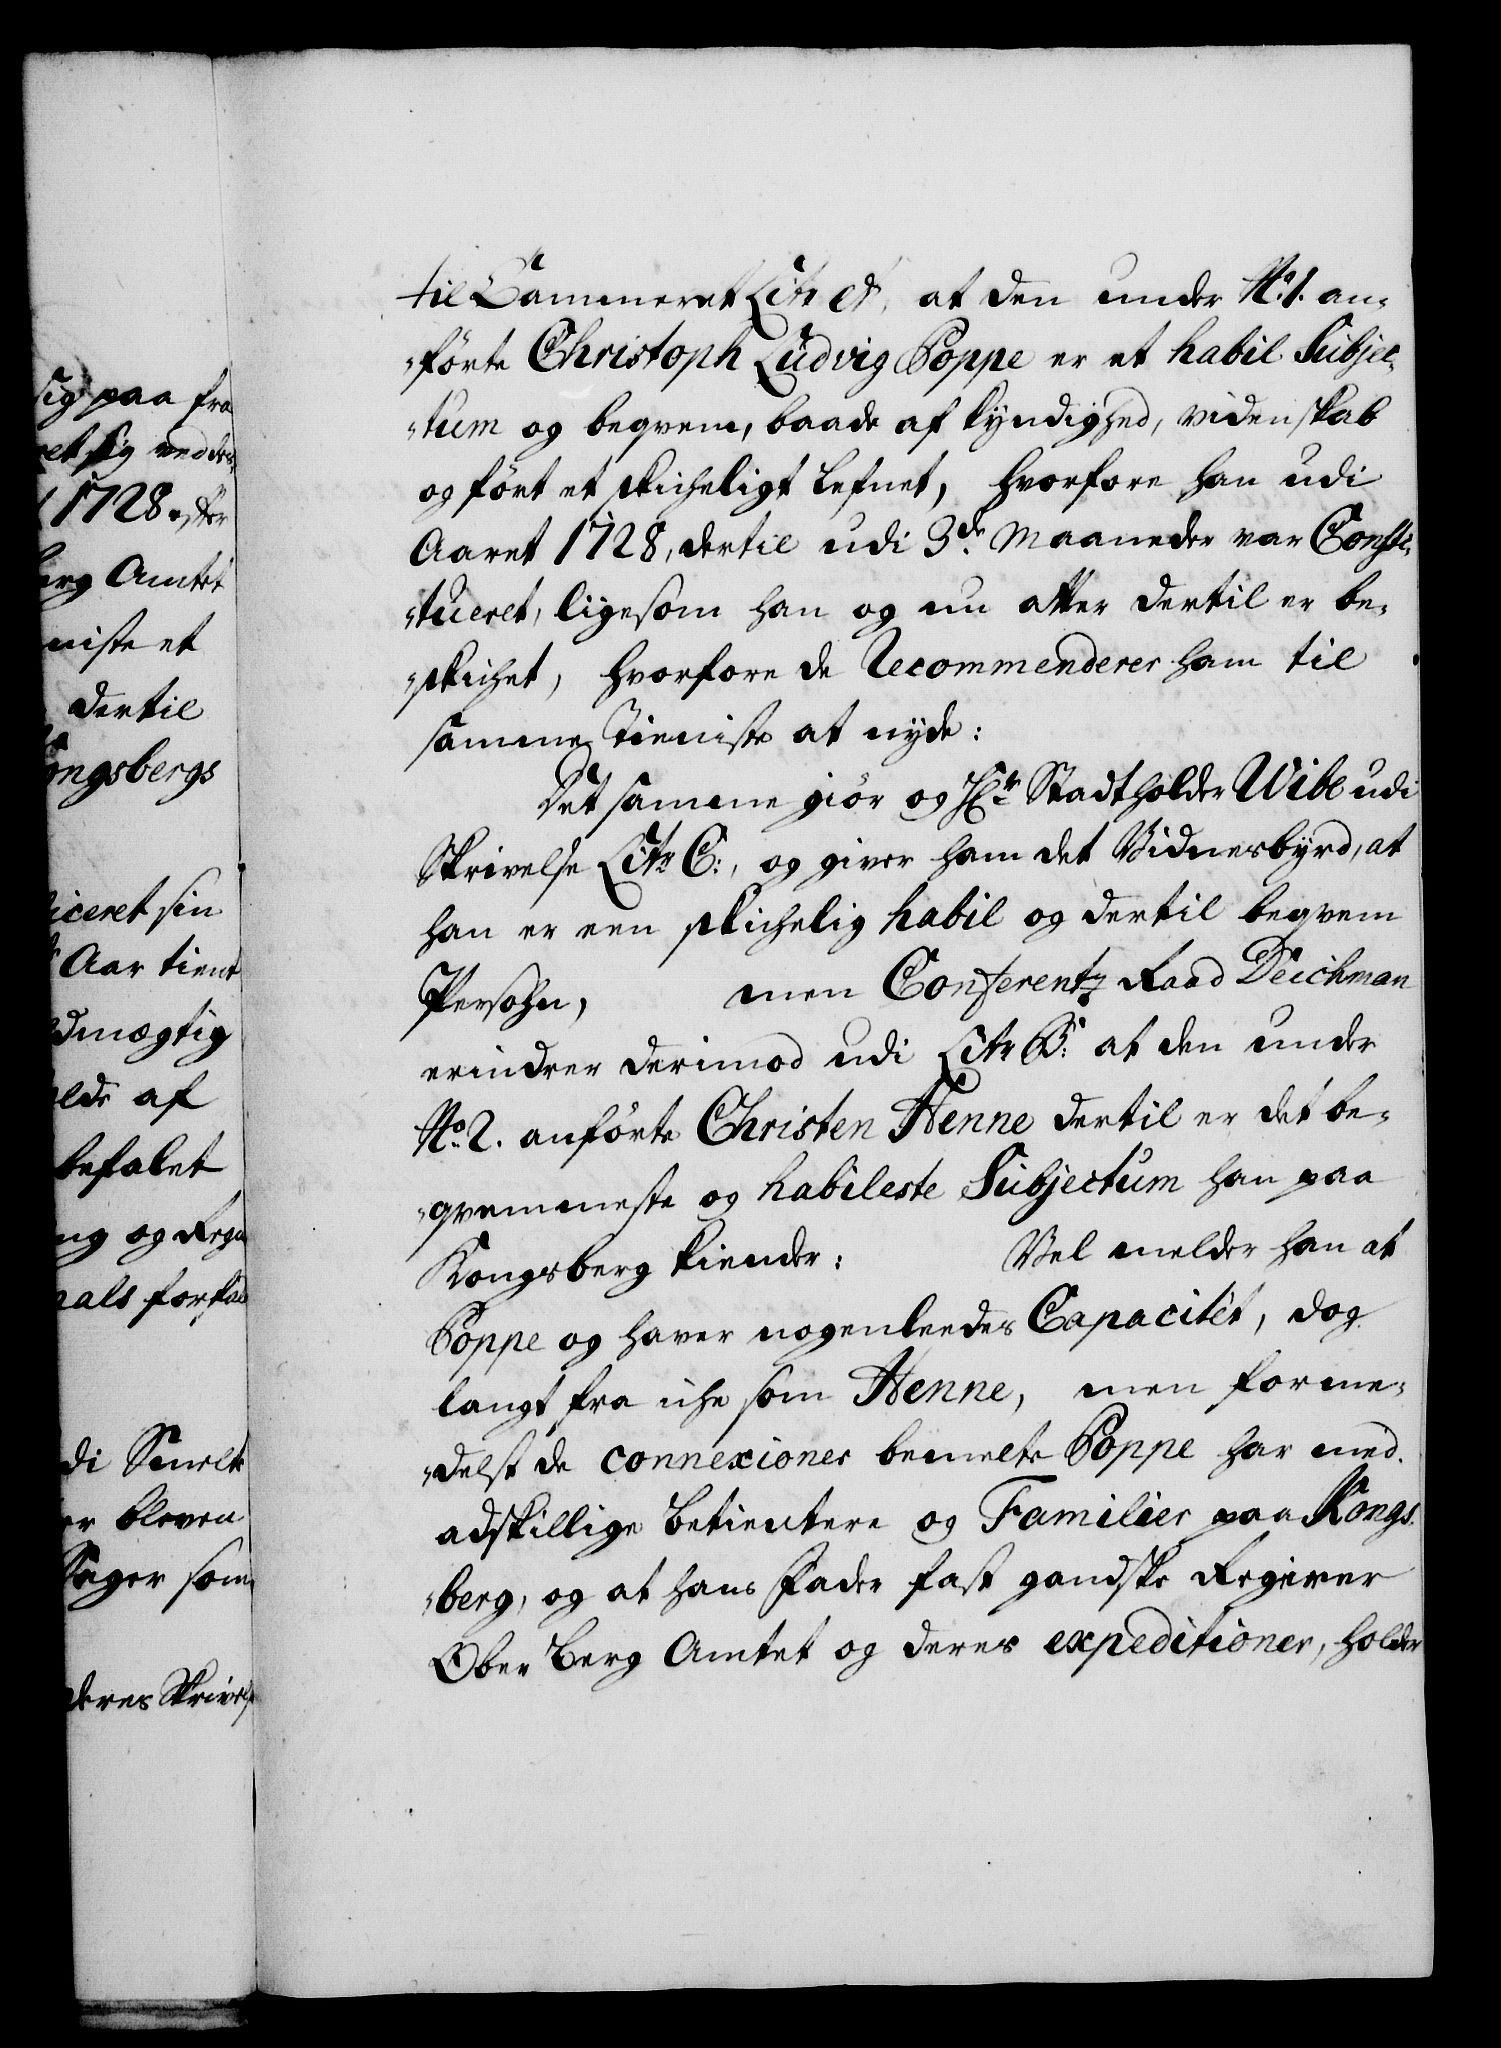 sig paa fra
et sig ved der
1728. efter
berg Amtet
niste et
dertil
ongsbergs
iceret sin
Aar tient
dmægtig
olde af
befalet
ng og Regn
aals forfal
di Smelt
er bleven
Sager som
deres Skrivelse
til Cammeret Litr A, at den under No. 1. an-
"förte Christoph Ludvig Poppe er et habil Subjec-
"tum og beqvem, baade af kyndighed, videnskab
og fört et skicheligt Lefnet, hvorfore han udi
Aaret 1728, dertil udi 3de Maaneder var Consti-
"tueret, ligesom han og nu atter dertil er be-
"skichet, hvorfore de Recommenderer ham til
samme Tieniste at nyde:
Det samme giör og Hr. Stadtholder Wibe udi
Skrivelse Litr C:, og giver ham det Vidnesbyrd, at
han er een skichelig habil og dertil beqvem
Persohn, men Conferentz Raad Deichman
erindrer derimod udi Litr B: at den under
No. 2. anförte Christen Henne dertil er det be-
"qvemmeste og habileste Subjectum han paa
Kongsberg kiender: Vel melder han at
Poppe og haver nogenleedes Capacitét, dog
langt fra iche som Henne, men forme-
"delst de connexioner bemelte Poppe har med
adskillige Betientere og Familier paa Kongs-
"berg, og at hans Fader fast gandske Regierer
Ober Berg Amtet og deres expeditioner, holder